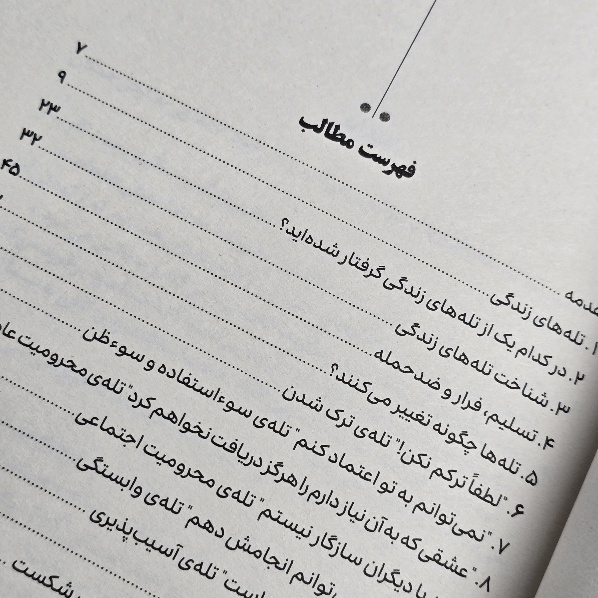 فهرست مطالب
مقدمه ۷
۱. تله‌های زندگی ۹
۲. در کدام یک از تله‌های زندگی گرفتار شده‌اید؟ ۲۳
۳. شناخت تله‌های زندگی ۳۲
۴. تسلیم، فرار و ضدحمله ۴۵
۵. تله‌ها چگونه تغییر می‌کنند؟
۶. "لطفاً ترکم نکن!" تله‌ی ترک شدن
۷. "نمی‌توانم به تو اعتماد کنم" تله‌ی سوءاستفاده و سوءظن
۸. "عشقی که به آن نیاز دارم را هرگز دریافت نخواهم کرد" تله‌ی محرومیت
با دیگران سازگار نیستم" تله‌ی محرومیت اجتماعی
انجامش دهم" تله‌ی وابستگی
است" تله‌ی آسیب‌پذیری
شکست